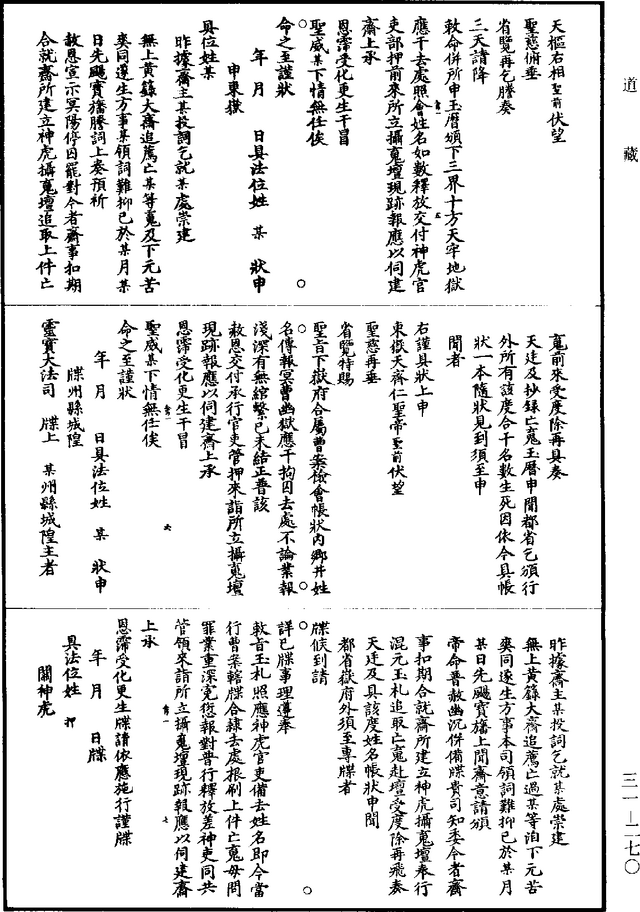 道藏
天樞右相聖前伏望
聖慈俯垂
省覽再乞謄奏
三天請降
敕命併所申玉曆頒下三界十方天牢地獄
應干去處照會姓名如數釋放交付神虎官
吏部押前來所立攝䰟壇現跡報應以伺建
齋上承
恩霈受化更生干冒
聖威某下情無任俟
命之至謹狀
年月日具法位姓某狀申
申東嶽
具位姓某
昨據齋主某投詞乞就某處崇建
無上黃籙大齋追薦亡某等䰟及下元苦
爽同遂生方事某領詞難抑已於某月某
日先颺寶旛謄詞上奏預祈
赦恩宣示冥陽停囚罷對今者齋事扣期
合就齋所建立神虎攝䰟壇追取上件亡
䰟前來受度除再具奏
天廷及抄錄亡䰟玉曆申聞都省乞頒行
外所有該度合干名數生死因依今具帳
狀一本隨狀見到須至申
聞者
右謹具狀上申
東嶽天齊仁聖帝聖前伏望
聖慈再垂
省覽特賜
聖旨下獄府合屬曹案檢會帳狀內鄉井姓
名傳報冥曹幽獄應干拘囚去處不論業報
淺深有無綰繫已未結正普該
赦恩交付承行官吏管押來詣所立攝䰟壇
現跡報應以伺建齋上承
恩霈受化更生干冒
聖威某下情無任俟
命之至謹狀
年月日具法位姓某狀申
牒州縣城隍
靈寶大法司牒上某州縣城隍主者
昨據齋主某投詞乞就某處崇建
無上黃籙大齋追薦亡過某等洎下元苦
爽同遂生方事本司領詞難抑已於某月
某日先颺寶旛上聞齋意請頒
帝命普赦幽沉併備牒貴司知委今者齋
事扣期合就齋所建立神虎攝䰟壇奉行
混元玉札追取亡䰟赴壇受度除再飛奏
天廷及具該度姓名帳狀申聞
都省嶽府外須至專牒者
牒候到請
詳已牒事理遵奉
敕旨玉札照應神虎官吏備去姓名即今當
行曹案轄牒合隸去處根刷上件亡䰟毋問
罪業重深寃愆報對普行釋放差神吏同共
管領來詣所立攝䰟壇現跡報應以伺建齋
上承
恩霈受化更生牒請依應施行謹牒
年月日牒
具法位姓押
關神虎
三一—二七〇